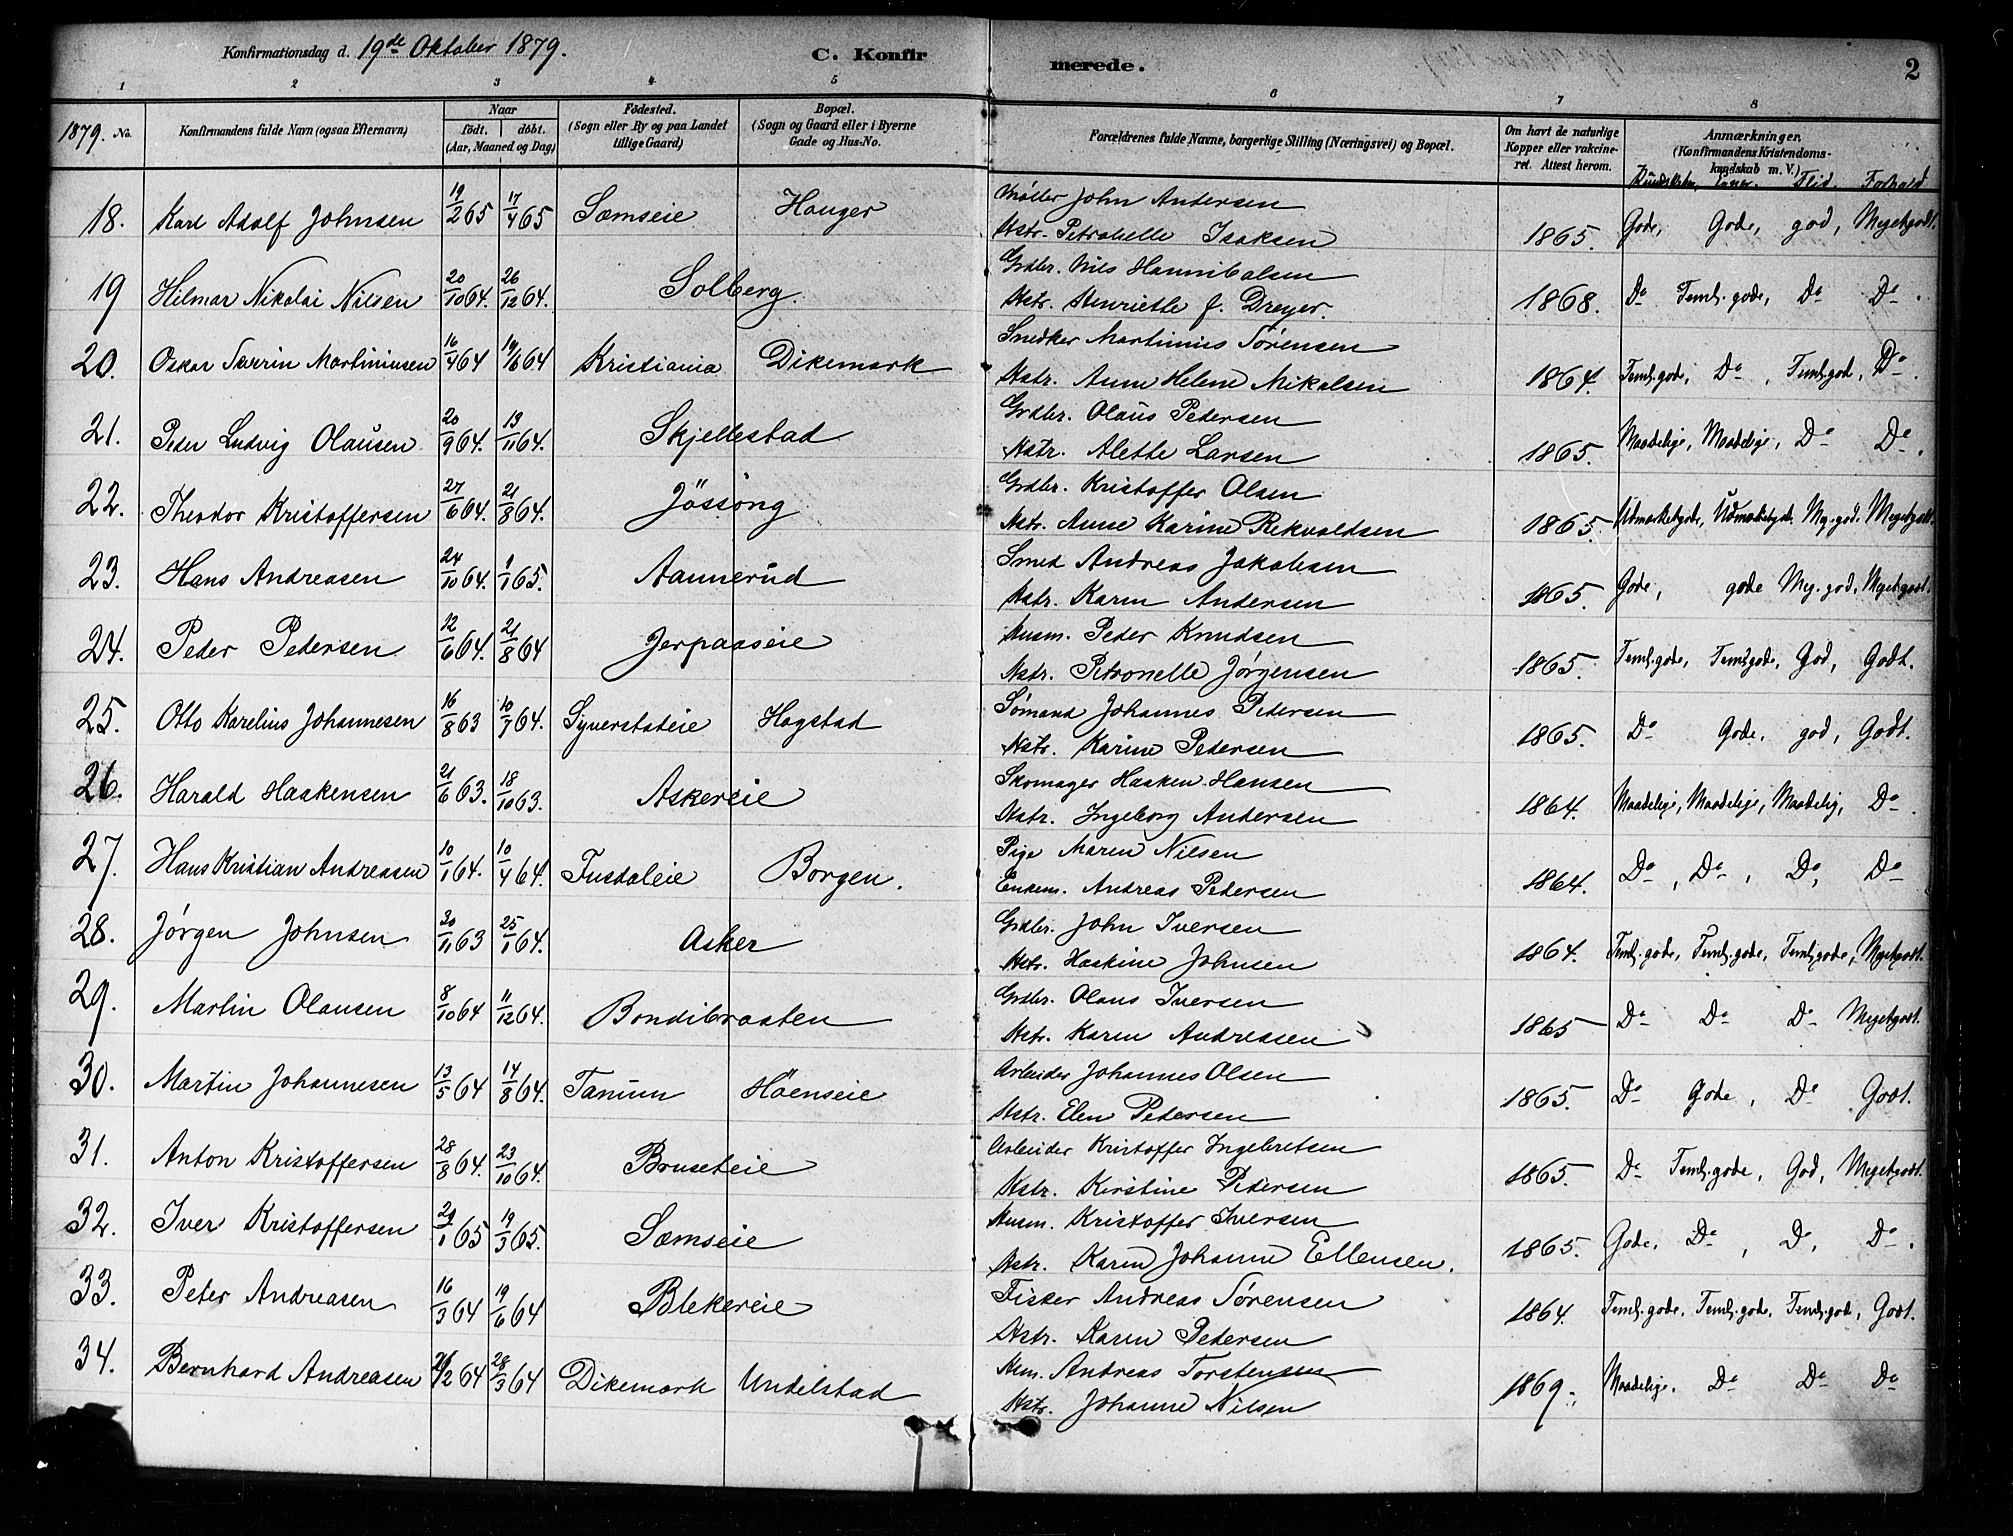 Konfirmationsdag d. 19de Oktober 1879.
C. Konfirmerede.
2
1 2 3 4 5 6 7 8
1879. No.
Konfirmandens fulde Navn (ogsaa Efternavn)
Naar
födt. döbt.
(Aar, Maaned og Dag)
Födested.
(Sogn eller By og paa Landet
tillige Gaard)
Bopæl.
(Sogn og Gaard eller i Byerne
Gade og Hus-No.
Forældrenes fulde Navne, borgerlige Stilling (Næringsvei) og Bopæl.
Om havt de naturlige
Kopper eller vakcine-
ret. Attest herom.
Anmærkninger.
(Konfirmandens Kristendoms-
kundskab m. V.)
Flid. Forhold
18. Karl Adolf Johnsen 19/2 65 17/4 65 Sæmseie Hauger Møller John Andersen
Hstr. Petronelle Isaksen 1865. Gode, Gode, god, Megetgodt.
19 Hilmar Nikolai Nilsen 20/10 64. 26/12 64. Solberg Grdbr. Nils Hannibalsen
Hstr. Henriette J. Dreyer. 1868. Do Teml. gode, Do Do.
20. Oskar Severin Martiniusen 16/4 64 19/6 64 Kristiania Dikemark Snedker Martinius Sørensen
Hstr. Anne Helene Nikolsen 1864. Teml. gode, Do, Teml. god, Do.
21. Peder Ludvig Olausen 20/9 64. 13/11 64. Skjellestad Grdbr. Olaus Pedersen
Hstr. Alette Larsen 1865. Maadelige, Maadelige, Do Do.
22. Theodor Kristoffersen 27/6 64. 21/8 64. Jössong Grdbr. Kristoffer Olsen
Hstr. Anne Karine Rekvaldsen 1865. Udmærketgode, Udmærketgode, Mg. god. Megetgodt.
23. Hans Andreasen 24/10 64. 1/1 65. Aannerud Smed Andreas Jakobsen
Hstr. Karen Andersen 1865. Gode, gode Meg. god, Megetgodt.
24. Peder Pedersen 12/6 64. 21/8 64 Jerpaaseie Husm. Peder Knudsen
Hstr. Petronelle Jørgensen 1865. Teml. gode, Teml. gode, God, Godt.
25. Otto Karelius Johannesen 16/8 63 10/7 64. Syverstadeie Hogstad Sømand Johannes Pedersen
Hstr. Karine Pedersen 1865. Do Gode, god, Godt.
26. Harald Haakensen 21/6 63. 18/10 63. Askereie Skomager Haaken Hansen
Hstr. Ingeborg Andersen 1864. Maadelige, Maadelige, Maadelig, Do.
27. Hans Kristian Andreasen 10/1 64. 10/4 64. Fusdaleie Borgen. Pige Maren Nilsen
Enkem. Andreas Pedersen 1864. Do, Do, Do, Do
28. Jørgen Johnsen 30/11 63 25/1 64. Asker Grdbr. John Iversen
Hstr. Haakine Johnsen 1864. Teml. gode, Teml. gode, Teml. gode, Megetgodt.
29. Martin Olausen 8/10 64 11/12 64. Bondibraaten Grdbr. Olaus Iversen
Hstr. Karen Andreasen 1865 Do Do Do Megetgodt.
30. Martin Johannesen 13/5 64 14/8 64. Tanum Höenseie Arbeider Johannes Olsen
Hstr. Elen Petersen 1865. Do Gode, Do Godt.
31. Anton Kristoffersen 28/8 64. 23/10 64. Bruseteie Arbeider Kristoffer Ingebretsen
Hstr. Kirstine Pedersen 1865. Do Teml. gode, God, Megetgodt.
32. Iver Kristoffersen 29/1 65 19/3 65. Sæmseie Husm. Kristoffer Iversen
Hstr. Karen Johanne Ellensen. 1865. Gode, Do, Do, Do.
33. Peter Andreasen 16/3 64 19/6 64 Blekereie Fisker Andreas Sørensen
Hstr. Karen Pedersen 1864. Teml. gode, Teml. gode, Teml. god, Godt.
34. Bernhard Andreasen /2 64 28/3 64 Dikemark Undelstad Andreas Torstensen
Hstr. Johanne Nilsen 1869. Maadelige. Do Do Do